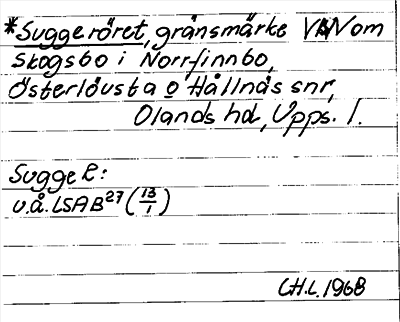 *Suggeröret, gränsmärke VNV om
Skogsbo i Norrfinnbo,
Österlövsta o Hållnäs snr,
Olands hd, Upps. l.
Sugge R:
u.å. LSA B27 (13/1)
CH.L. 1968